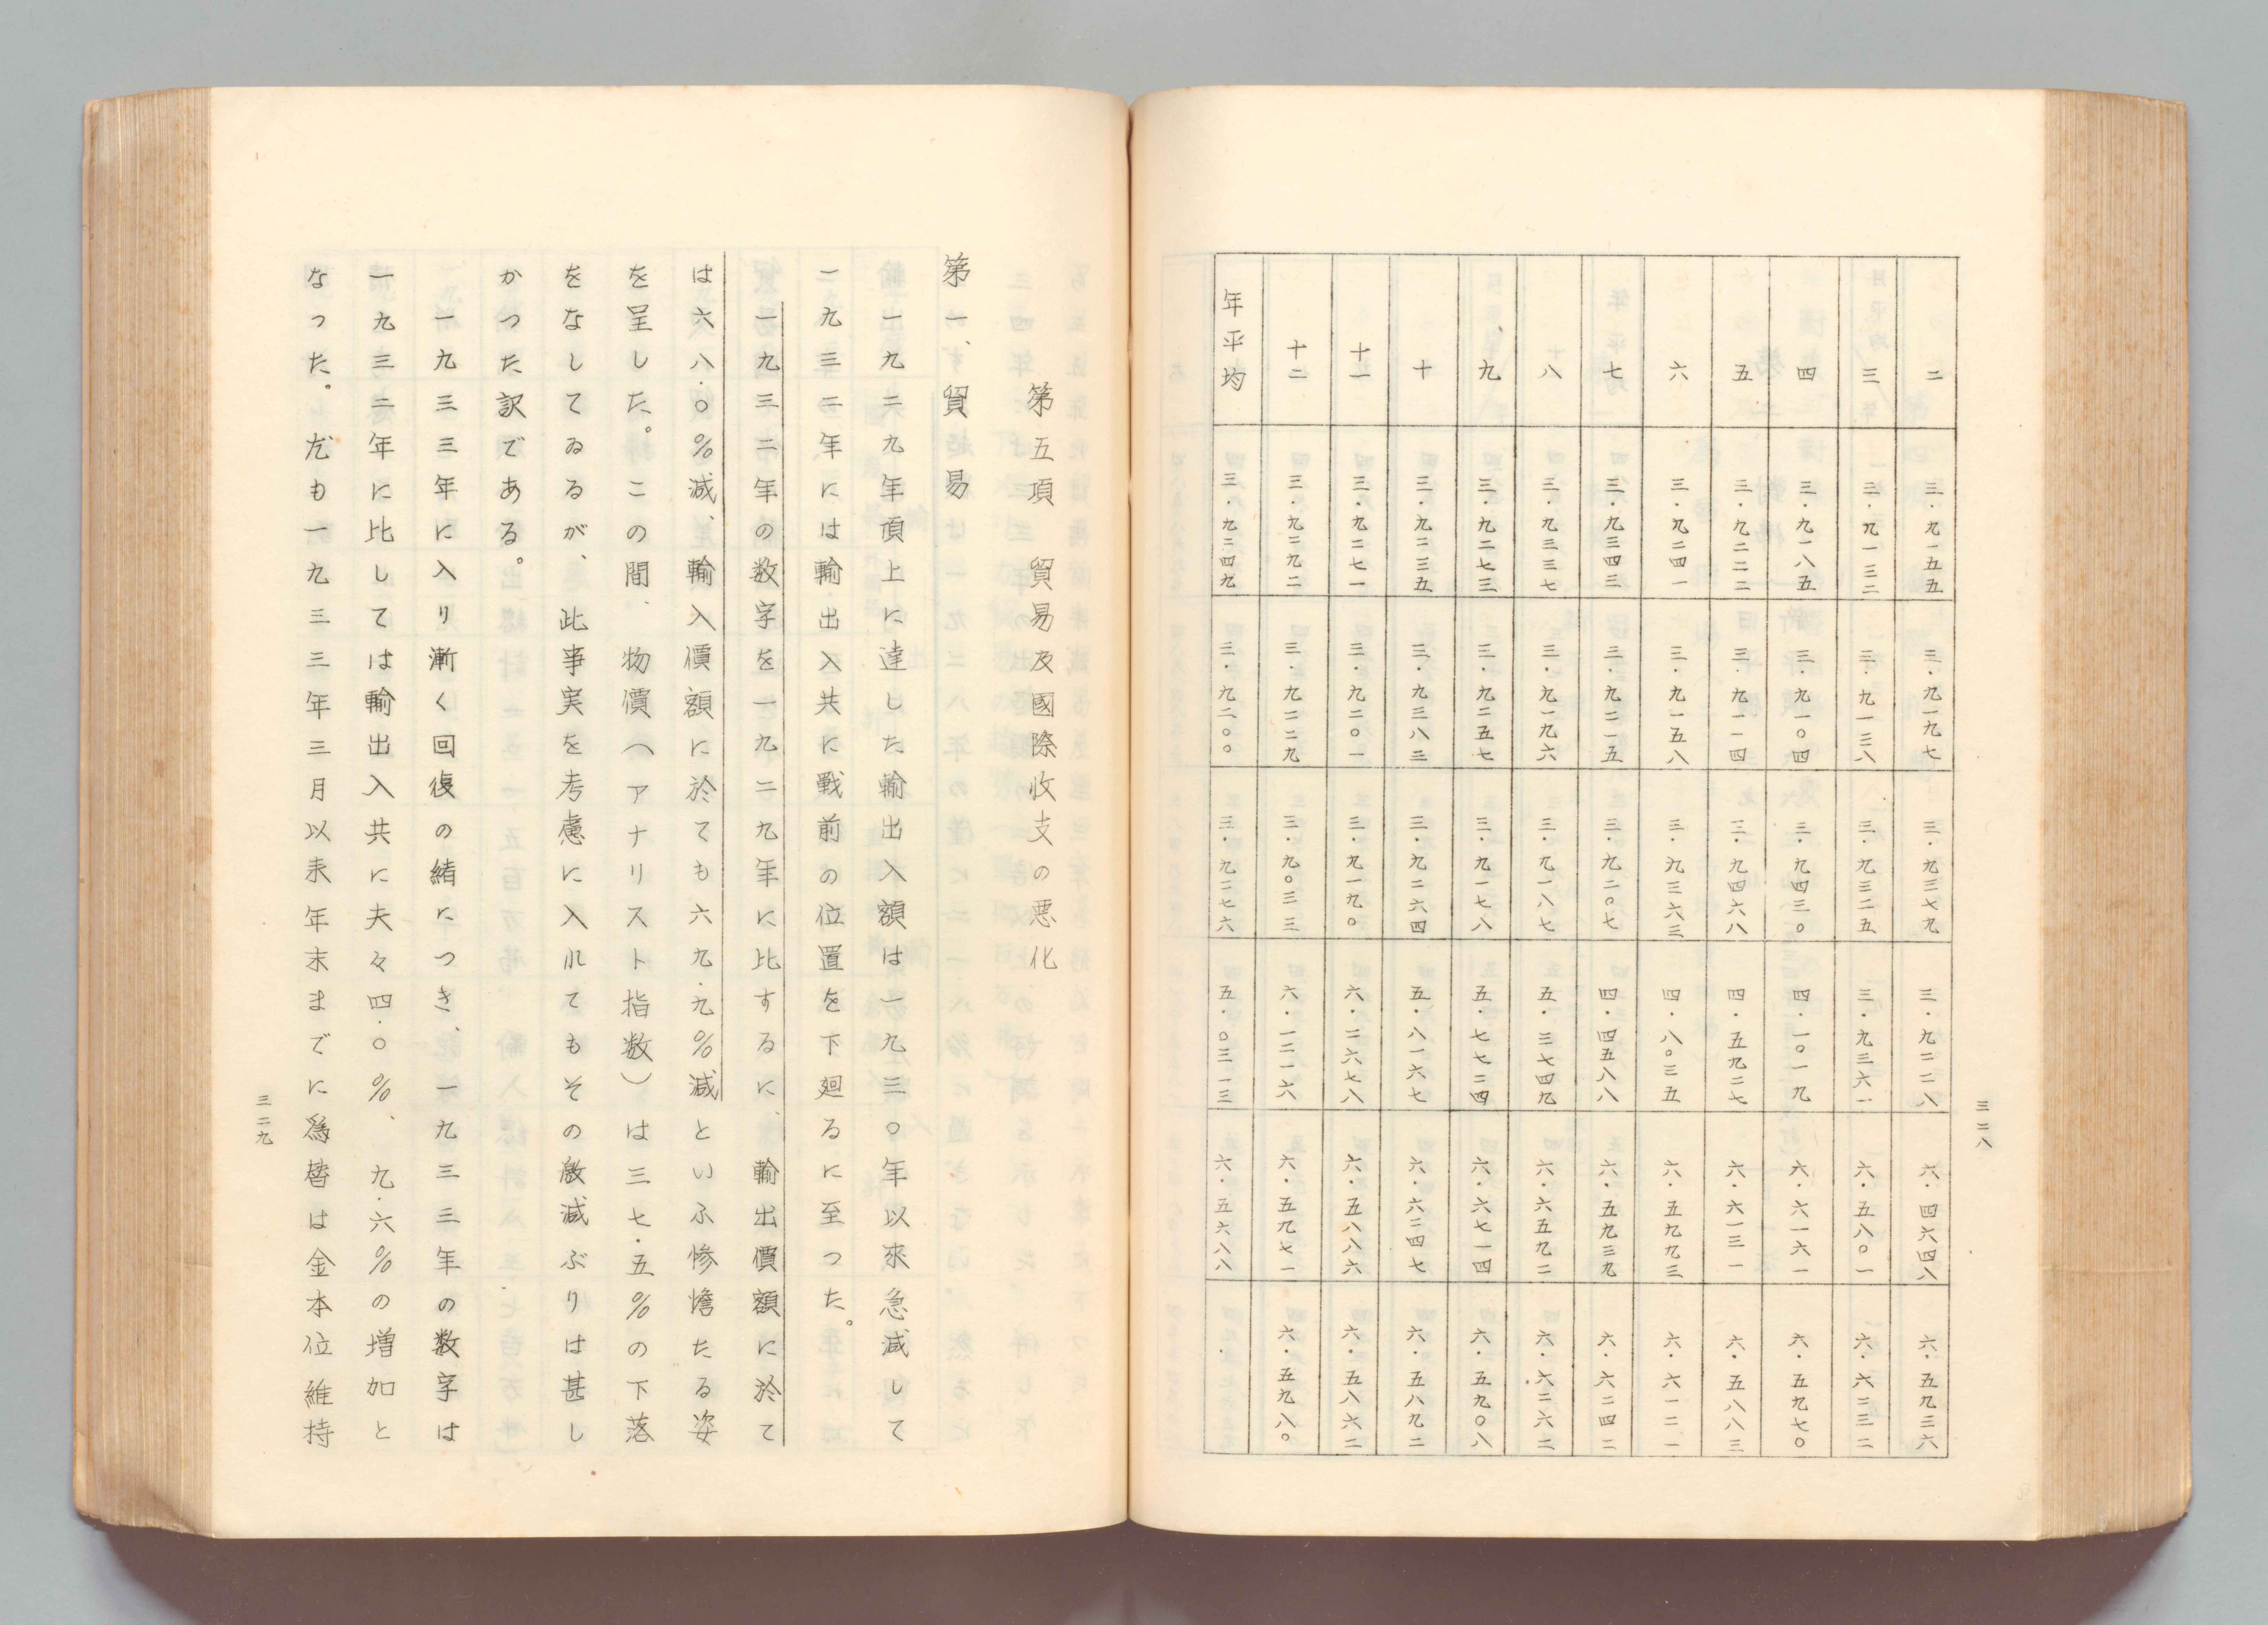 三二八
二 三・九一五五 三・九一九七 三・九三七九 三・九二二八 六・四六四八 六・五九三六
三 三・九一三二 三・九一三八 三・九三二五 三・九三六一 六・五八〇一 六・六三三二
四 三・九一八五 三・九一〇四 三・九四三〇 四・一〇一九 六・六一六一 六・五九七〇
五 三・九二二二 三・九一一四 三・九四六八 四・五九二七 六・六一三一 六・五八八三
六 三・九二四一 三・九一五八 三・九三六三 四・八〇三五 六・五九九三 六・六一二一
七 三・九三四三 三・九二一五 三・九二〇七 四・四五八八 六・五九三九 六・六二四二
八 三・九三三七 三・九一九六 三・九一八七 五・三七四九 六・六五九二 六・六二六二
九 三・九二七三 三・九二五七 三・九一七八 五・七七二四 六・六七一四 六・五九〇八
十 三・九二三五 三・九三八三 三・九二六四 五・八一六七 六・六二四七 六・五八九二
十一 三・九二七一 三・九二〇一 三・九一九〇 六・二六七八 六・五八八六 六・五八六二
十二 三・九二九二 三・九二二九 三・九〇三三 六・一二一六 六・五九七一 六・五九八〇
年平均 三・九二四九 三・九二〇〇 三・九二七六 五・〇三一三 六・五六八八 ・
第五項 貿易及國際收支の悪化
第一、貿易
一九二九年頂上に達した輸出入額は一九三〇年以來急減して
一九三二年には輸出入共に戰前の位置を下廻るに至つた。
一九三二年の数字を一九二九年に比するに、輸出價額に於て
は六八・〇％減、輸入價額に於ても六九・九％減といふ惨憺たる姿
を呈した。この間、物價（アナリスト指数）は三七・五％の下落
をなしてゐるが、此事実を考慮に入れてもその激減ぶりは甚し
かつた訳である。
一九三三年に入り漸く回復の緒につき、一九三三年の数字は
一九三二年に比しては輸出入共に夫々四・〇％、九・六％の増加と
なつた。尤も一九三三年三月以来年末までに爲替は金本位維持
三二九